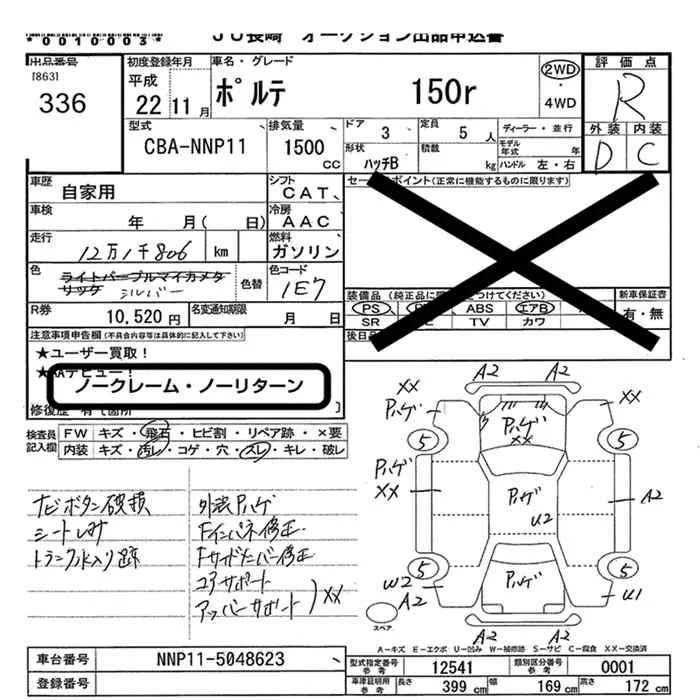 *0010003*
JU長崎 オークション出品申込書
出品番号
[863]
336
初度登録年月
平成
22 11月
車名・グレード
ポルテ 150r
2WD
・
4WD
評価点
R
外装 内装
D C
型式
CBA-NNP11
排気量
1500
CC
ドア
3
定員
5 人
形状
ハッチB
積載
kg
ディーラー・並行
モデル
年式 年
ハンドル 左・右
車歴
自家用
シフト
CAT
車検
年 月( 日)
冷房
AAC
走行
12万1千806 km
燃料
ガソリン
色
ライトパープルマイカメタ
リック シルバー
色替
色コード
1E7
R券
10,520円
名変通知期限
月 日
セールスポイント(正常に機能するものに限ります)
装備品
PS ABS エアB
SR TV カワ
新車保証書
有・無
注意事項申告欄(不具合内容等は具体的に記入して下さい)
★ユーザー買取!
★AAデビュー!
ノークレーム・ノーリターン
検査員
記入欄
FW キズ・飛石・ヒビ割・リペア跡・×要
内装 キズ・汚レ・コゲ・穴・スレ・キレ・破レ
ナビボタン破損
シートしみ
トランク水入り跡
外装Pハゲ
Fインパネ修正
Fサイドメンバー修正
コアサポート
アッパーサポート ) XX
A2 A2
XX
Pハゲ
XX
Pハゲ
XX
5 5
Pハゲ
XX
Pハゲ
U2
A2
5 5
W2
A2
Pハゲ
U1
A2 A2
スペア
A-キズ E-エクボ U-凹み W-補修跡 S-サビ C-腐食 XX-交換済
車台番号
NNP11-5048623
登録番号
型式指定番号
参考
12541
類別区分番号
参考
0001
車庫証明用
参考
長さ
399 cm
幅
169 cm
高さ
172 cm